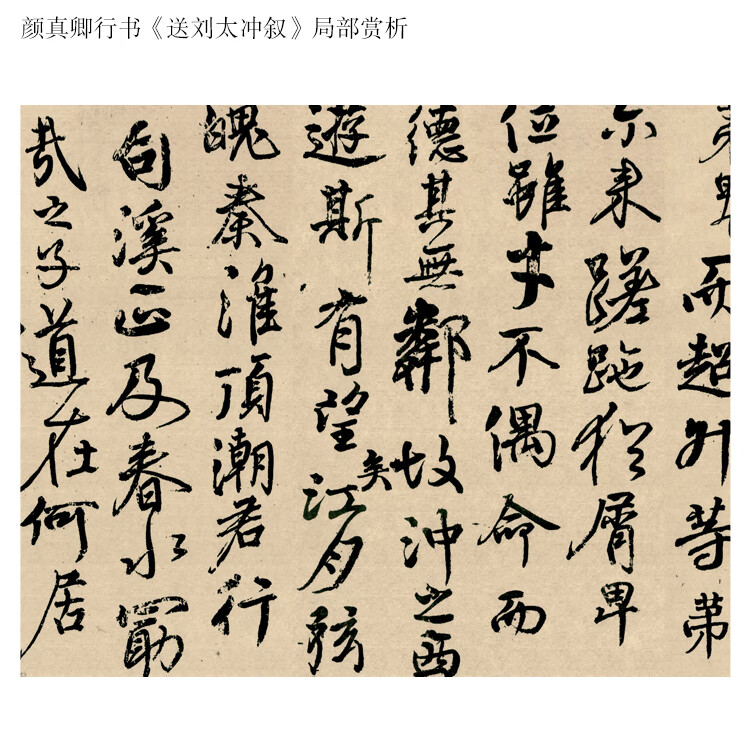 颜真卿行书《送刘太冲叙》局部赏析
而超升等第
尔来蹉跎猶屑卑
位雖才不偶命而
德其無鄰故沖之西
遊斯有望矣江夕弦
魄秦淮頂潮君行
句溪正及春水勖
哉之子道在何居